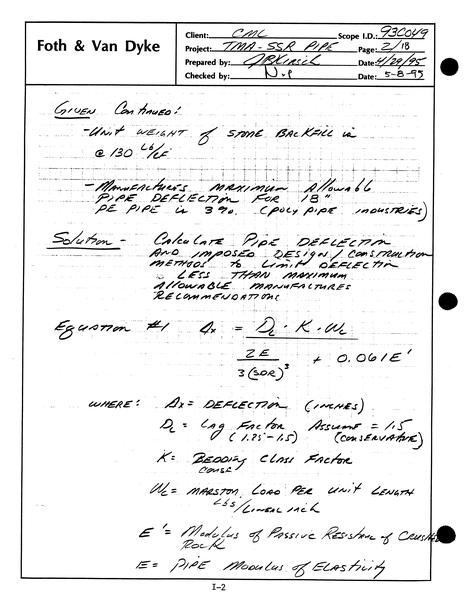 Foth & Van Dyke
Client: CML Scope I.D.: 93C049
Project: TMA-SSR PIPE Page: 2/18
Prepared by: Date: 4/28/95
Checked by: N.P Date: 5-8-95
GIVEN CONTINUED:
-UNIT WEIGHT of STONE BACKFILL is
@ 130 Lb/CF
-MANUFACTURES MAXIMUM Allowable
PIPE DEFLECTION FOR 18"
PE PIPE is 3%. (POLY PIPE INDUSTRIES)
Solution - CALCULATE PIPE DEFLECTION
AND IMPOSED DESIGN/CONSTRUCTION
METHODS to LIMIT DEFLECTION
LESS THAN MAXIMUM
ALLOWABLE MANUFACTURES
RECOMMENDATIONS
Equation #1 Δx = DL · K · WC
2E
3(SDR)³ + 0.061E'
WHERE: Δx = DEFLECTION (INCHES)
DL = LAG FACTOR ASSUME = 1.5
(1.25-1.5) (CONSERVATIVE)
K = BEDDING CLASS FACTOR
CONST
WC = MARSTON LOAD PER UNIT LENGTH
Lbs/LINEAL inch
E' = Modulus of PASSIVE RESISTANCE of CRUSHED
ROCK
E = PIPE MODULUS of ELASTICITY
I-2